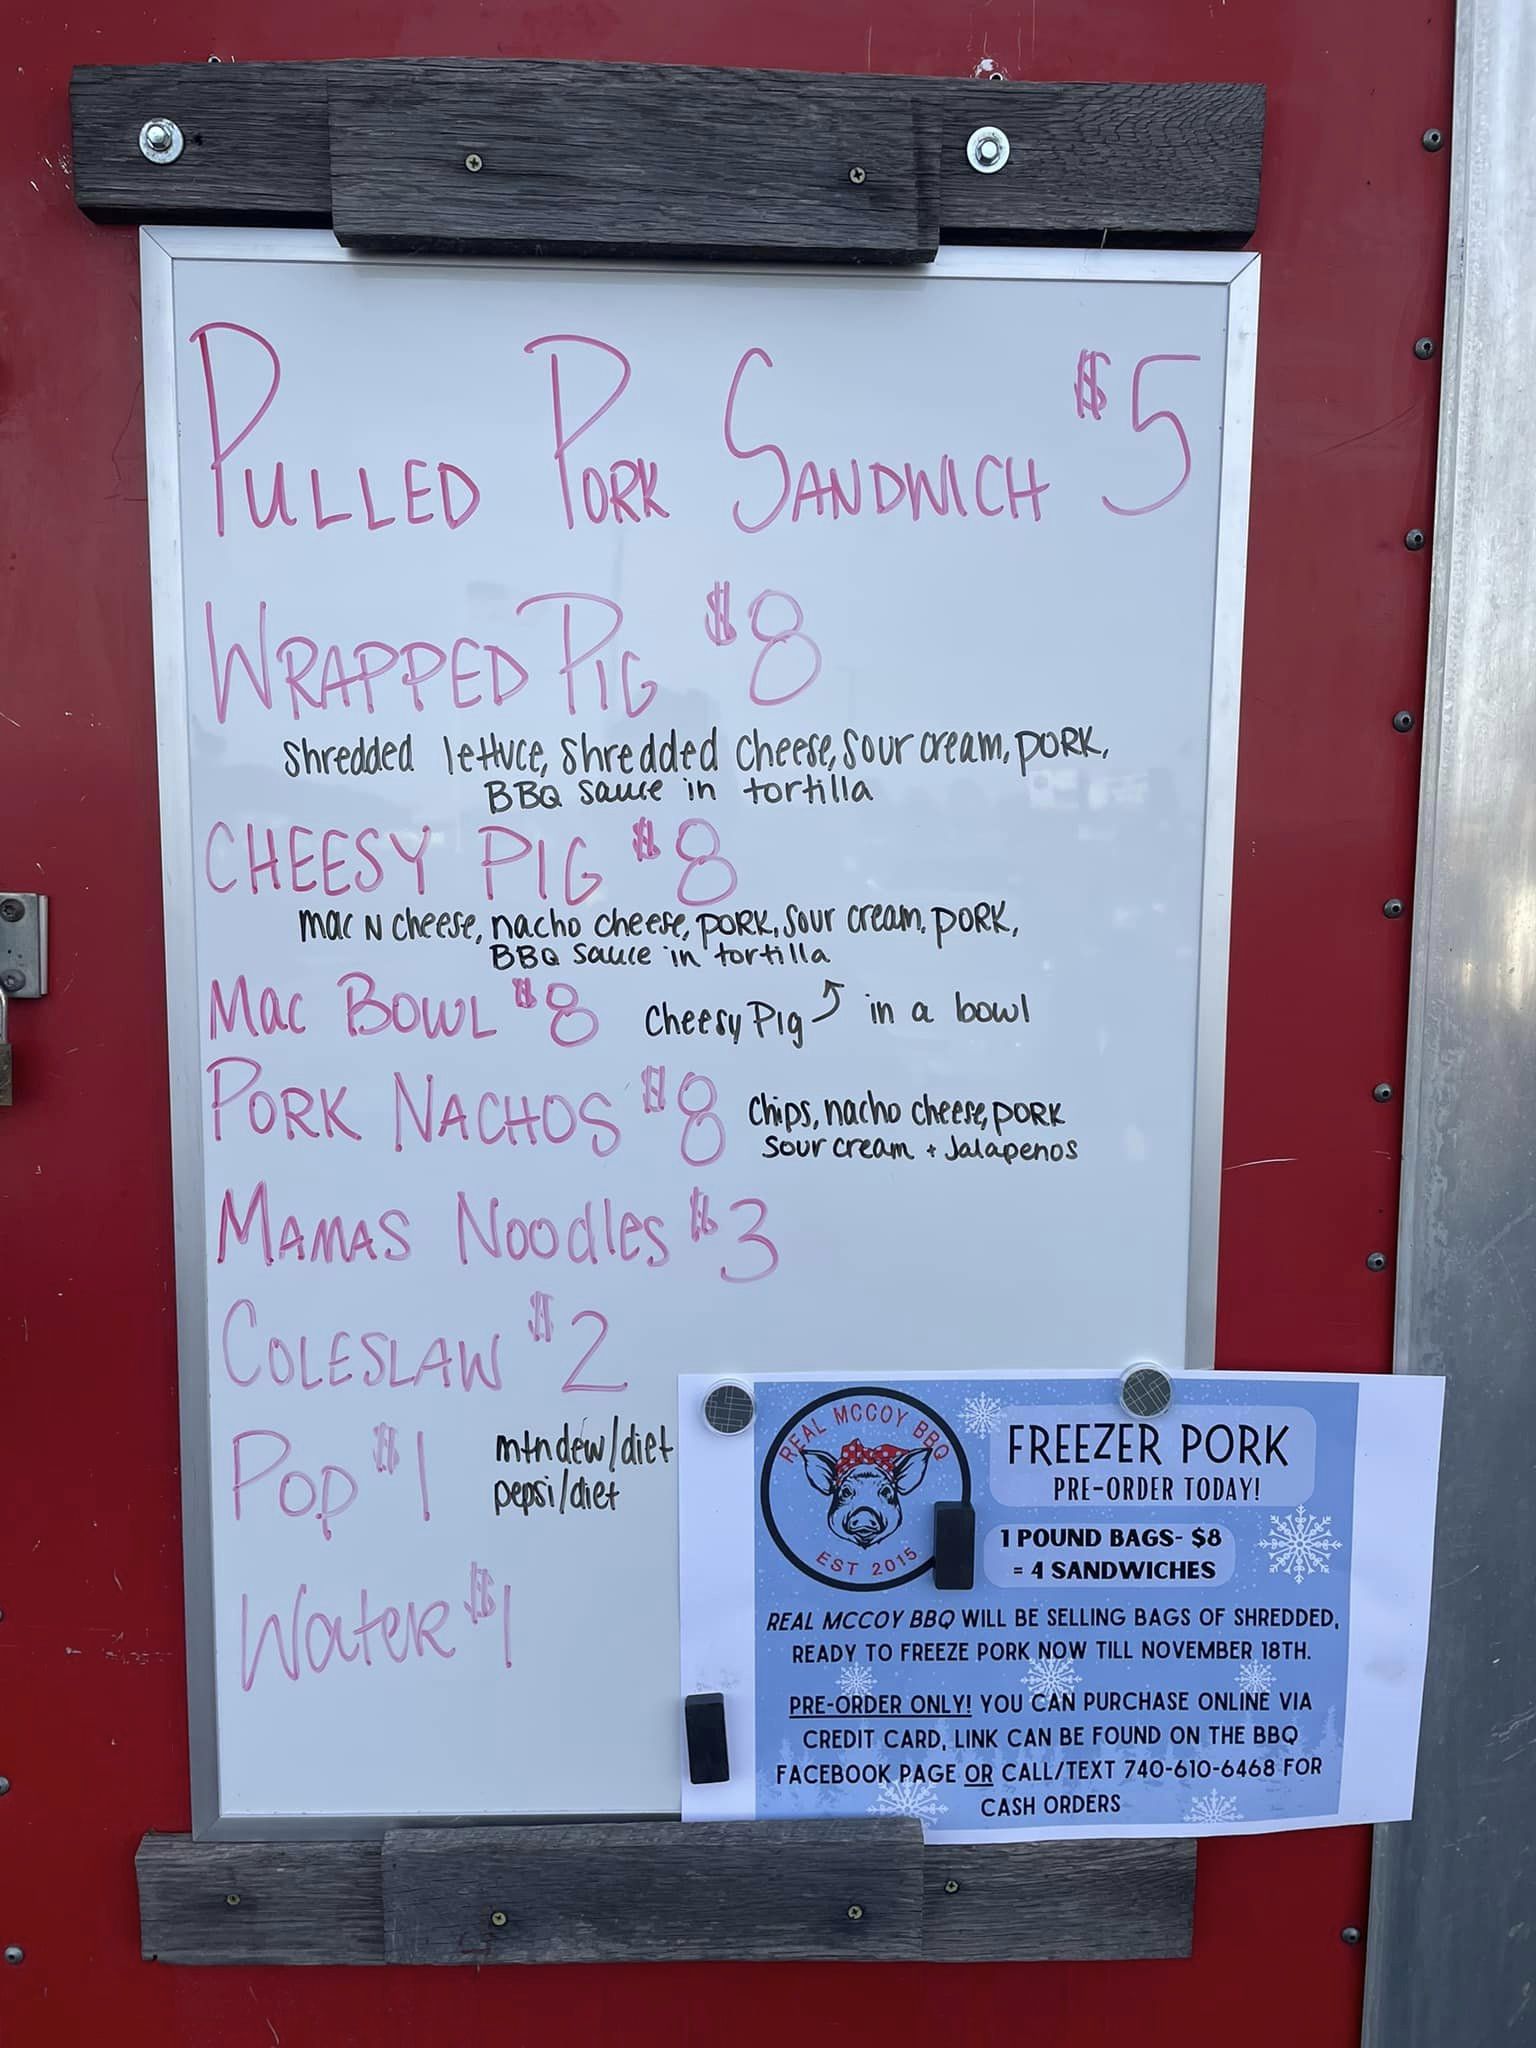 PULLED PORK SANDWICH $5
WRAPPED PIG $8
shredded lettuce, shredded cheese, sour cream, PORK,
BBQ sauce in tortilla
CHEESY PIG $8
mac N cheese, nacho cheese, PORK, sour cream, PORK,
BBQ sauce in tortilla
MAC BOWL $8 Cheesy Pig in a bowl
PORK NACHOS $8 Chips, nacho cheese, PORK
sour cream + Jalapenos
MAMAS NOODLES $3
COLESLAW $2
POP $1 mtn dew/diet
pepsi/diet
WATER $1
REAL MCCOY BBQ
EST 2015
FREEZER PORK
PRE-ORDER TODAY!
1 POUND BAGS- $8
= 4 SANDWICHES
REAL MCCOY BBQ WILL BE SELLING BAGS OF SHREDDED,
READY TO FREEZE PORK NOW TILL NOVEMBER 18TH.
PRE-ORDER ONLY! YOU CAN PURCHASE ONLINE VIA
CREDIT CARD, LINK CAN BE FOUND ON THE BBQ
FACEBOOK PAGE OR CALL/TEXT 740-610-6468 FOR
CASH ORDERS